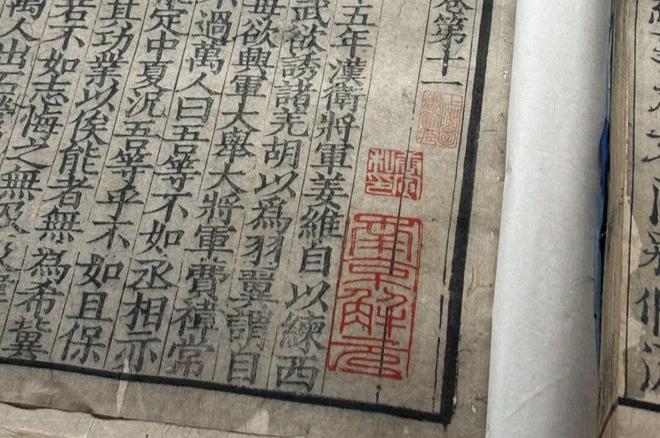 卷第十一
上海圖書館藏
唐寅私印
南京解元
十五年漢衛將軍姜維自以練西
武欲誘諸羌胡以為羽翼謂自
每欲興軍大舉大將軍費禕常
不過萬人曰吾等不如丞相亦
定中夏況吾等乎不如且保
其功業以俟能者無為希冀
若不如志悔之無及
萬人出石營